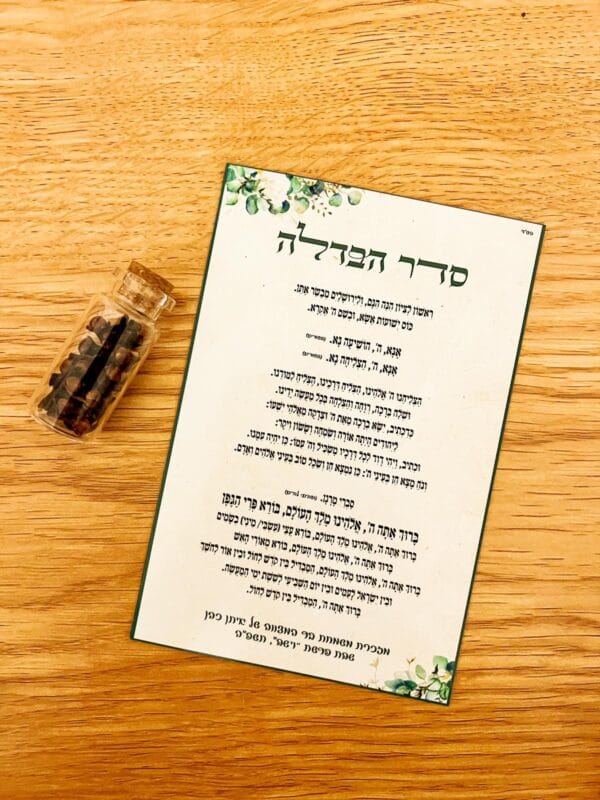 בס״ד
סדר הבדלה
ראשון לציון הנה הנם, ולירושלים מבשר אתן.
כוס ישועות אשא, ובשם ה' אקרא.
אָנָּא, ה', הוֹשִׁיעָה נָּא.
אָנָּא, ה', הַצְלִיחָה נָּא.
הצליחנו ה' אלהינו, הצליח דרכינו, הצליח למודנו.
ושלח ברכה, רוחה והצלחה בכל מעשה ידינו.
כדכתיב, ישא ברכה מאת ה' וצדקה מאלהי ישעו:
ליהודים היתה אורה ושמחה וששון ויקר:
וכתיב, ויהי דוד לכל דרכיו משכיל וה' עמו: כן יהיה עמנו.
ונח מצא חן בעיני ה': כן נמצא חן ושכל טוב בעיני אלהים ואדם.
סברי מרנן.
ברוך אתה ה', אלהינו מלך העולם, בורא פרי הגפן
ברוך אתה ה', אלהינו מלך העולם, בורא עצי (עשבי/ מיני) בשמים
ברוך אתה ה', אלהינו מלך העולם, בורא מאורי האש
ברוך אתה ה', אלהינו מלך העולם, המבדיל בין קדש לחול ובין אור לחושך
ובין ישראל לעמים ובין יום השביעי לששת ימי המעשה.
ברוך אתה ה', המבדיל בין קדש לחול.
מזכרת משמחת בר המצווה של איתן כהן
שבת פרשת "וישב", תשפ"ה